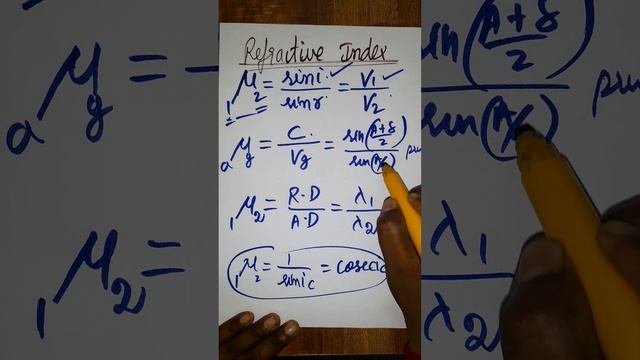 Refractive Index
₁μ₂ = sin i / sin r = V₁ / V₂
ₐμg = C / Vg = sin(A+δ/2) / sin(A/
₁μ₂ = R·D / A·D = λ₁ / λ₂
₁μ₂ = 1 / sin ic = cosec ic